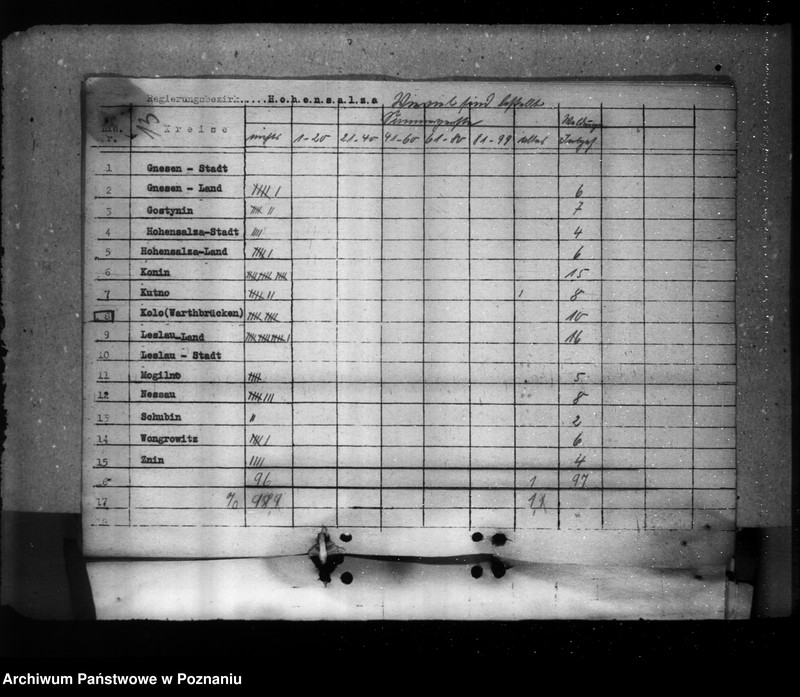 Regierungsbezirk.....H.o.h.e.n.s.a.l.z.a
13 Kreise 1-20 21-40 41-60 61-80 81-99
1 Gnesen - Stadt
2 Gnesen - Land 6
3 Gostynin 7
4 Hohensalza-Stadt 4
5 Hohensalza-Land 6
6 Konin 15
7 Kutno 1 8
8 Kolo(Warthbrücken) 10
9 Leslau-Land 16
10 Leslau - Stadt
11 Mogilno 5
12 Nessau 8
13 Schubin 2
14 Wongrowitz 6
15 Znin 4
96 1 97
17 %
Archiwum Państwowe w Poznaniu